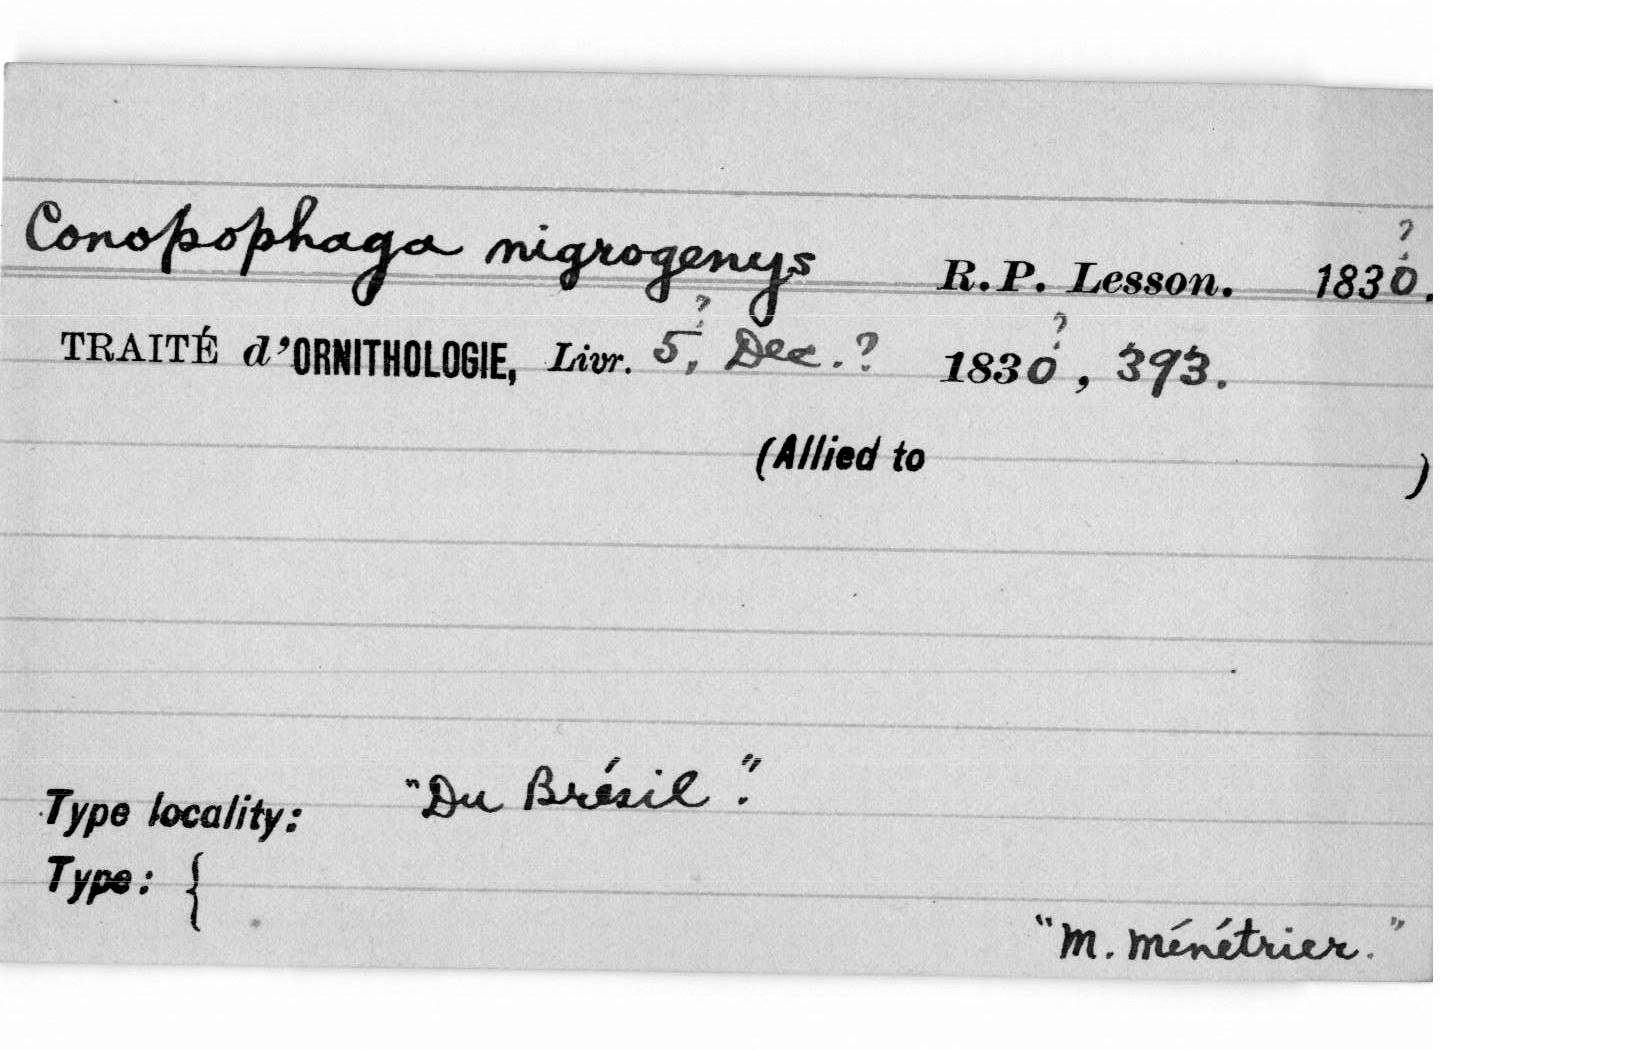 Conopophaga nigrogenys R.P. Lesson. 1830?.
TRAITÉ d'ORNITHOLOGIE, Livr. 5?, Dec.? 1830?, 393.
(Allied to )
Type locality: "Du Brésil".
Type: {
"M. Ménétrier."